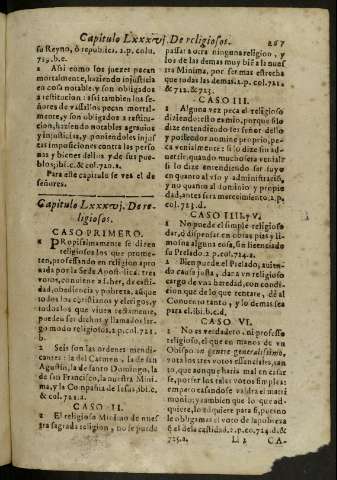 Capitulo Lxxxvj. De religiosos. 267
su Reyno, ò republica. 2. p. colu.
719. b. c.
2 Assi como los juezes pecan
mortalmente, haziendo injusticia
en cosa notable, y son obligados
a restitucion: assi tambien los se-
ñores de vasallos pecan mortal-
mente, y son obligados a restitu-
cion, haziendo notables agrauios
y injusticia, y poniendoles injus-
tas imposiciones contra las perso-
nas y bienes dellos y de sus pue-
blos; ibi. c. & col. 720. a.
Para este capitulo se vea el de
señores.
Capitulo Lxxxvj. De re-
ligiosos.
CASO PRIMERO.
1 PRopissimamente se dizen
religiosos los que prome-
ten, professando en religion apro
uada por la Sede Apostolica, tres
votos, conuiene a saber, de casti-
dad, obediencia y pobreza, aũque
todos los christianos y clerigos, y
todos los que viuen rectamente,
pueden ser dichos y llamados lar-
go modo religiosos, 2. p. col. 721.
b.
2 Seis son las ordenes mendi-
cantes: la del Carmen, la de san
Agustin, la de santo Domingo, la
de san Francisco, la nuestra Mini-
ma, y la Compañia de Iesus, ibi. c.
& col. 721. a.
CASO II.
1 El religioso Minimo de nues
tra sagrada religion, no se puede
passar a otra ninguna religion, y
los de las demas muy biẽ a la nues
tra Minima, por ser mas estrecha
que todas las demas. 2. p. col. 721.
& 722. & 723.
CASO III.
1 Alguna vez peca el religioso
diziendo: esto es mio, porque si lo
dize entendiendo ser señor dello
y posseedor nomine proprio, pe-
ca venialmente: si lo dize sin ad-
uertir, quando mucho sera venial:
si lo dize entendiendo ser suyo
en quanto al vso y administraciõ,
y no quanto al dominio y propie
dad, antes sera merecimiento. 2. p.
col. 723. d.
CASO IIII. y V.
1 No puede el simple religioso
dar, ò dispensar en obras pias y li-
mosna alguna cosa, sin licencia de
su Prelado. 2. p. col. 724. a.
2 Bien puede el Prelado, auien-
do causa justa, dar a vn religioso
cargo de vna heredad, con condi-
cion que de lo que rentare, dé al
Conuento tanto, y lo demas sea
para el. ibi. b. c. d.
CASO VI.
1 No es verdadero, ni professo
religioso, el que en manos de vn
Obispo in genere generalissimo,
vota los tres votos essenciales, tan
to, que aunque haria mal en casar
se, por ser los tales votos simples:
empero casandose valdra el matri
monio; y tambien que lo que ad-
quiere, lo adquiere para si, pues no
le obligamos el voto de la pobreza
q̃ el de la castidad. 2. p. co. 724. d. &
725. a. Ll 2 CA-